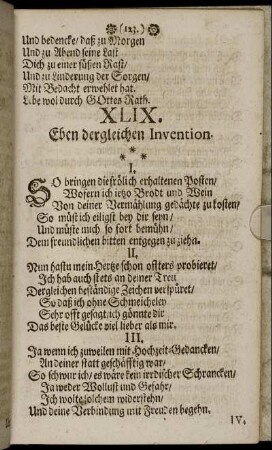 (123.)
Und bedencke/ daß zu Morgen
Und zu Abend seine Last
Dich zu einer süßen Rast/
Und zu Linderung der Sorgen/
Mit Bedacht erwehlet hat.
Lebe wol durch GOttes Rath.
XLIX.
Eben dergleichen Invention.
* * *
I.
SO bringen die frölich erhaltenen Posten/
Wofern ich ietzo Brodt und Wein
Von deiner Vermählung gedächte zu kosten/
So müst ich eiligst bey dir seyn/
Und müste mich so fort bemühn/
Dem freundlichen bitten entgegen zu ziehn.
II.
Nun hastu mein Hertze schon öffters probieret/
Ich hab auch stets an deiner Treu
Dergleichen beständige Zeichen verspüret/
So daß ich ohne Schmeicheley
Sehr offt gesagt/ ich gönnte dir
Das beste Gelücke viel lieber als mir.
III.
Ja wenn ich zuweilen mit Hochzeit-Gedancken/
An deiner statt geschäfftig war/
So schwur ich/ es wäre kein irrdischer Schrancken/
Ja weder Wollust und Gefahr/
Ich wolte solchem widerstehn/
Und deine Verbindung mit Freuden begehn.
IV.